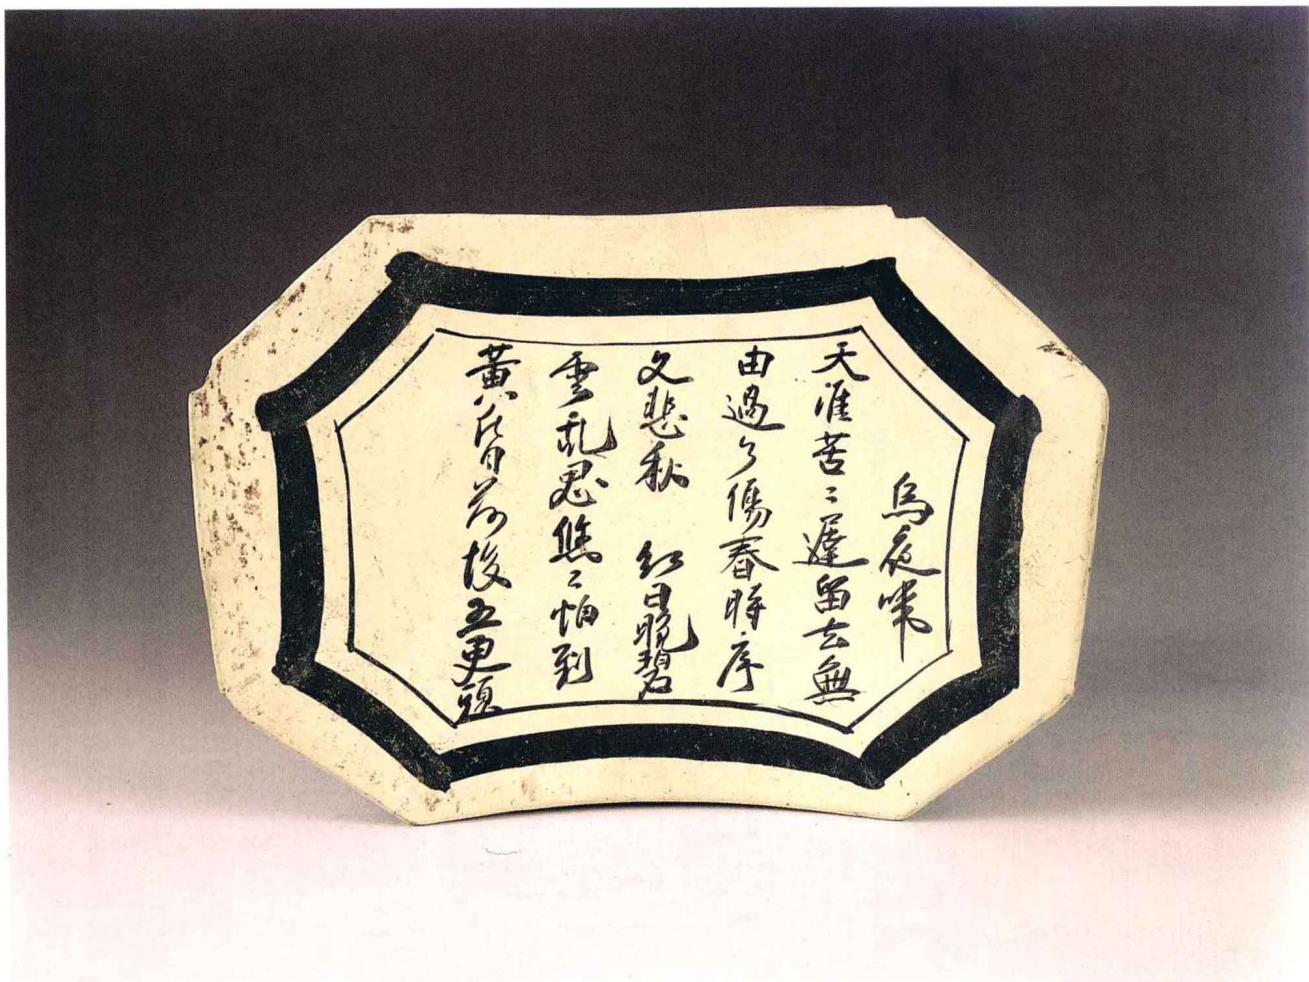 烏夜啼
天涯苦〻遲留去無
由過了傷春時序
又悲秋 紅日晚碧
雲乱思悠〻怕到
黃昏前後五更頭